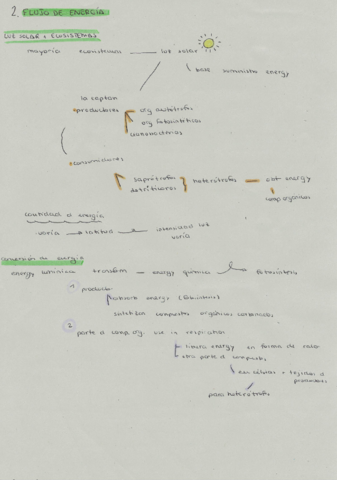 2. FLUJO DE ENERGÍA
LUZ SOLAR + ECOSISTEMAS
mayoría ecosistemas — luz solar
base suministro energy
la captan
productores org autótrofos
org fotosintéticos
cianobacterias
consumidores
saprótrofos
detritívoros
heterótrofos — obt energy
comp. orgánicos
cantidad d energía
varía → latitud intensidad luz
varía
conversión de energía
energy lumínica transform — energy química fotosíntesis
1 product
absorb energy (fotosíntesis)
compuestos orgánicos
2 parte d comp. org. usa in respiration
libera energy en forma de calor
otra parte d compuesto
en células + tejidos d
productores
para heterótrofos